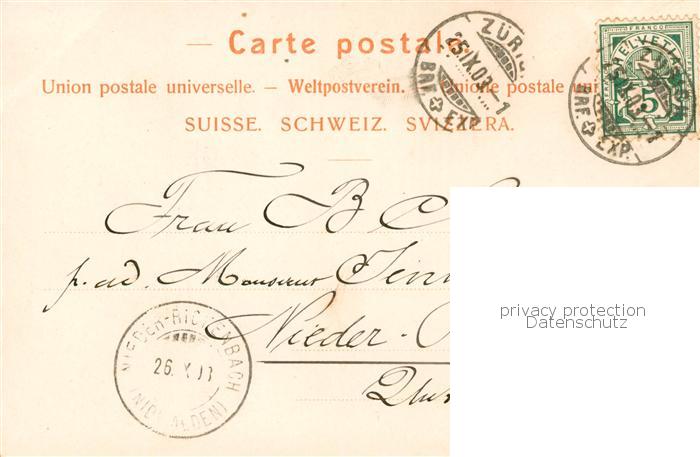 Carte postale
Union postale universelle. — Weltpostverein. — Unione postale
SUISSE. SCHWEIZ. SVIZZERA.
ZÜRICH
25.IX.03.-1
BRF. EXP.
HELVETIA
FRANCO
5
ZÜRICH
BRF. EXP.
Frau B
p. ad. Monsieur
Nieder-
NIEDER-RICKENBACH
26. X
(NIDWALDEN)
privacy protection
Datenschutz